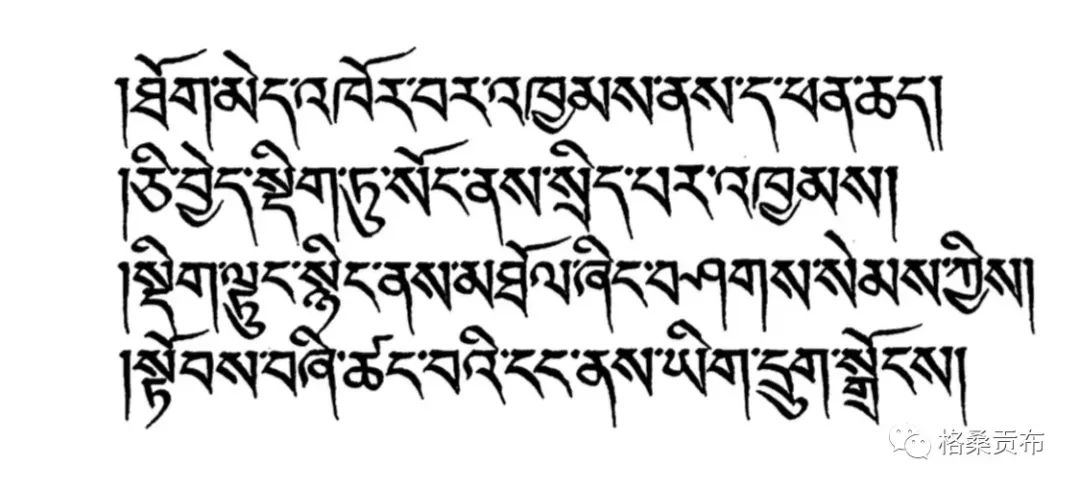 །ཐོག་མེད་འཁོར་བར་འཁྱམས་ནས་ད་ཕན་ཆད།།
།ཅི་བྱེད་སྡིག་ཏུ་སོང་ནས་སྲིད་པར་འཁྱམས།
།སྡིག་ལྟུང་སྙིང་ནས་མཐོལ་ཞིང་བཤགས་སེམས་ཀྱིས།
།སྟོབས་བཞི་ཚང་བའི་ངང་ནས་ཡིག་དྲུག་སྒྲོངས།
格桑贡布